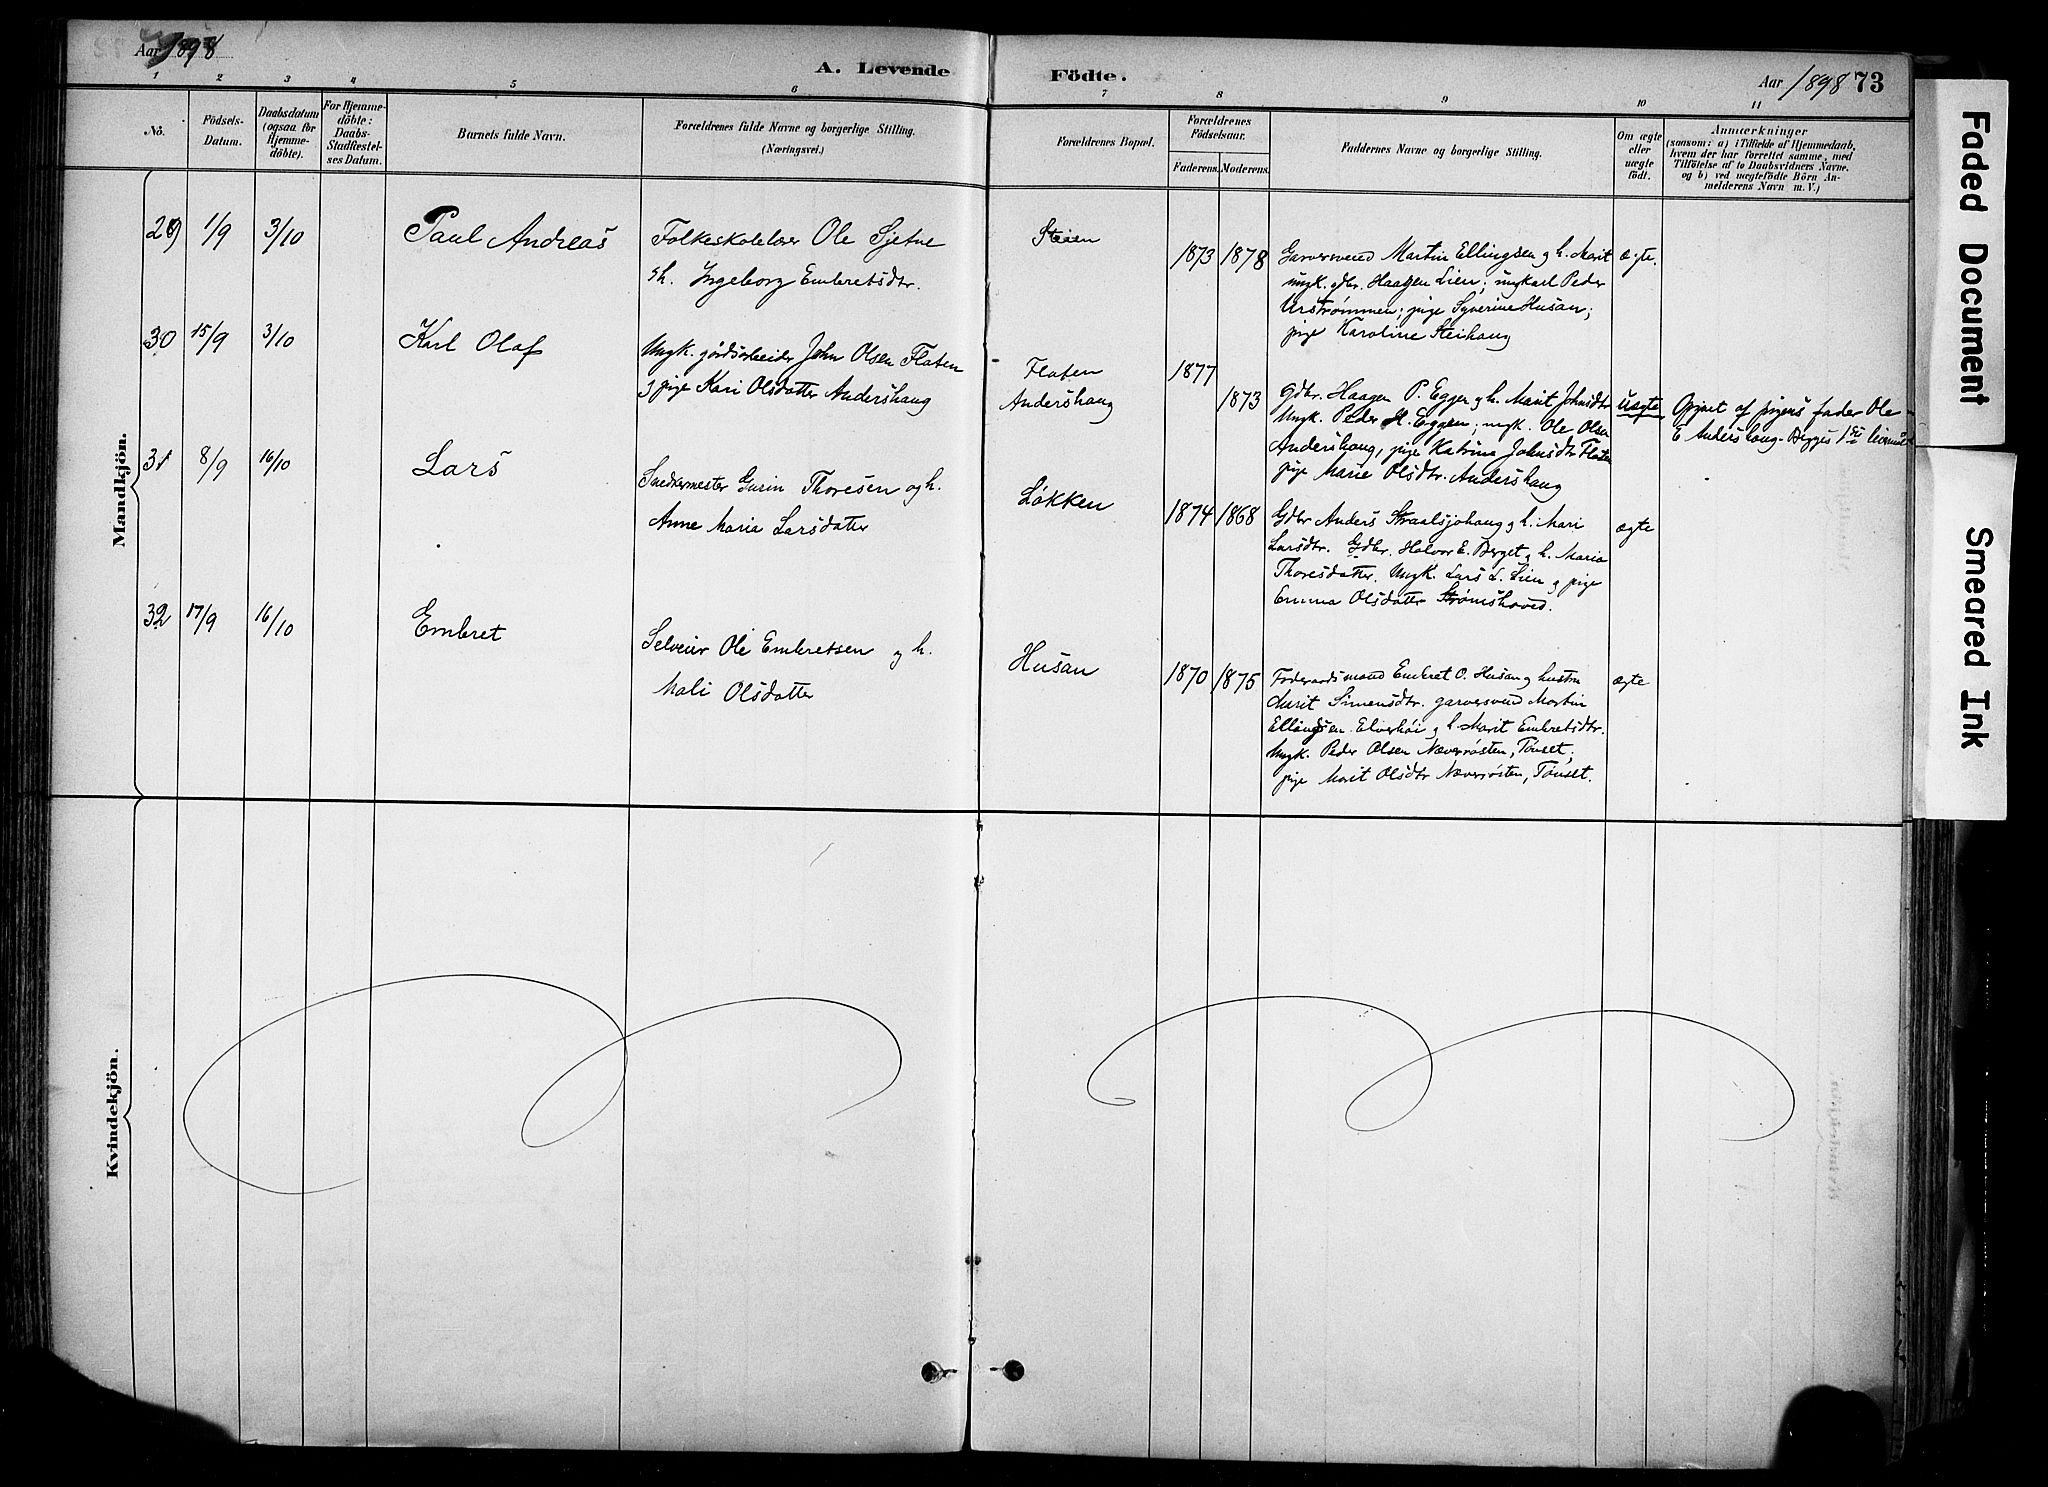 Aar 1898
A. Levende
Födte.
Aar 1898 73
1 2 3 4 5 6 7 8 9 10 11
No.
Födsels-
Datum.
Daabsdatum
(ogsaa for
Hjemme-
döbte).
For Hjemme-
döbte:
Daabs-
Stadfæstel-
ses Datum.
Barnets fulde Navn.
Forældrenes fulde Navne og borgerlige Stilling.
(Næringsvei.)
Forældrenes Bopæl.
Forældrenes
Födselsaar.
Faderens. Moderens.
Faddernes Navne og borgerlige Stilling.
Om ægte
eller
uægte
födt.
Anmærkninger
(saasom: a) i Tilfælde af Hjemmedaab,
hvem der har forrettet samme, med
Tilföielse af to Daabsvidners Navne.
og b) ved uægtefödte Börn An-
melderens Navn m. V.)
Mandkjön.
29 1/9 3/10 Paul Andreas
Folkeskolelærer Ole Sjetne
h. Ingeborg Embretsdtr.
Steien
1873 1878
Garversvend Martin Ellingsen og h. Marit
ungk. gdbr. Haagen Lien; ungkarl Peder
Urstrømmen; pige Syverine Husan;
pige Karoline Steihaug
ægte.
30 15/9 3/10 Karl Olaf
Ungk. gårdsarbeider John Olsen Floten
og pige Kari Olsdatter Andershaug
Floten
Andershaug
1877
1873
Gdbr. Haagen P. Eggen og h. Marit Johnsdtr
Ungk. Peder H. Eggen; ungk. Ole Olsen
Andershaug, pige Katrina Johnsdtr Floten
pige Marie Olsdtr. Andershaug
uægte
Opgivet af pigens fader Ole
E Andershaug. Begges 1ste
31 8/9 16/10 Lars
Snedkermester Gurin Thoresen og h.
Anne Maria Larsdatter
Løkken
1874 1868
Gdbr Anders Straalsjohaug og h. Mari
Larsdtr. Gdbr. Halvor E. Berget og h. Maria
Thoresdatter. Ungk. Lars L. Lien og pige
Emma Olsdatter Strømshoved.
ægte
32 17/9 16/10 Embret
Selveier Ole Embretsen og h.
Mali Olsdatter
Husan
1870 1875
Föderaadsmand Embret O. Husan og hustru
Marit Simensdtr. garversvend Martin
Ellingsen Elverhöi og h. Marit Embretsdtr.
Ungk. Peder Olsen Næverrösten, Tönset,
pige Marit Olsdtr Næverrösten, Tönset.
ægte
Kvindekjön.
Faded Document
Smeared Ink